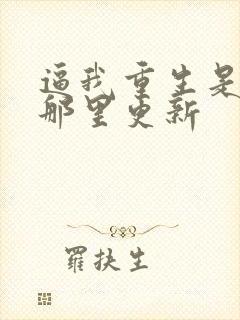 逼我重生是
那里更新
羅扶生